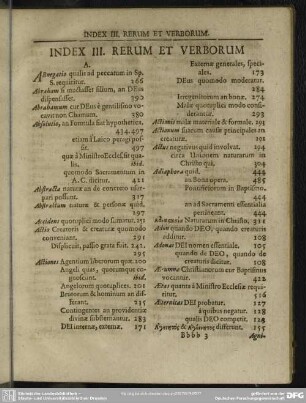 INDEX III. RERUM ET VERBORUM.
INDEX III. RERUM ET VERBORUM
A.
Abnegatio qualis ad peccatum in Sp.
S. requiritur. 266
Abraham si mactasset filium, an DEus
dispensasset. 392
Abrahamum cur DEus è gentilismo
Chanaan. 280
Absolutio, an Formula sit hypothetica.
434.497
etiam à Laico peragi possit.
497
quæ à Ministro Ecclesiæ qualis.
ibid.
quomodo Sacramentum in
A. C. dicitur. 421
Abstracta naturæ an de concreto
possint. 317
Abstractum naturæ & personæ quid.
Accidens quotuplici modo sumitur. 213
Actio Creatoris & creaturæ quomodo
conveniant. 291
Displicuit, passio grata fuit. 242.
295
Actiones Agentium liberorum quæ. 200
Angeli quas, quotcunque
ibid.
Angelorum quotuplices. 201
Brutorum & hominum ut differant.
235
Contingentes an providentiæ
divinæ subsint. 283
DEi internæ, externæ. 171
Externæ generales, speciales.
173
DEus quomodo moderatur.
284
Irregenitorum an bonæ. 274
Malæ quotuplici modo considerantur.
293
Actionis malæ materiale & formale. 293
Actionum suarum causæ principales an
creaturæ. 292
Actus negativus quid involvat. 294
circa Unionem naturarum in
Christo qui. 304
Adiaphora quid. 444
an bona opera. 485
Pontificiorum in Baptismo.
444
an ad Sacramenti essentialia
pertineant. 444
Naturarum in Christo. 321
Adæ quando DEO, quando creaturis
108
Adonai DEI nomen essentiale. 105
quando de DEO, quando de
creaturis dicitur. 108
Christianorum cur Baptismus
vocantur. 422
à Ministro Ecclesiæ requiritur.
516
Æternitas DEI probatur. 127
à quibus negatur. 128
qualis DEO competit. 124
& differunt. 155
Bbbb 3